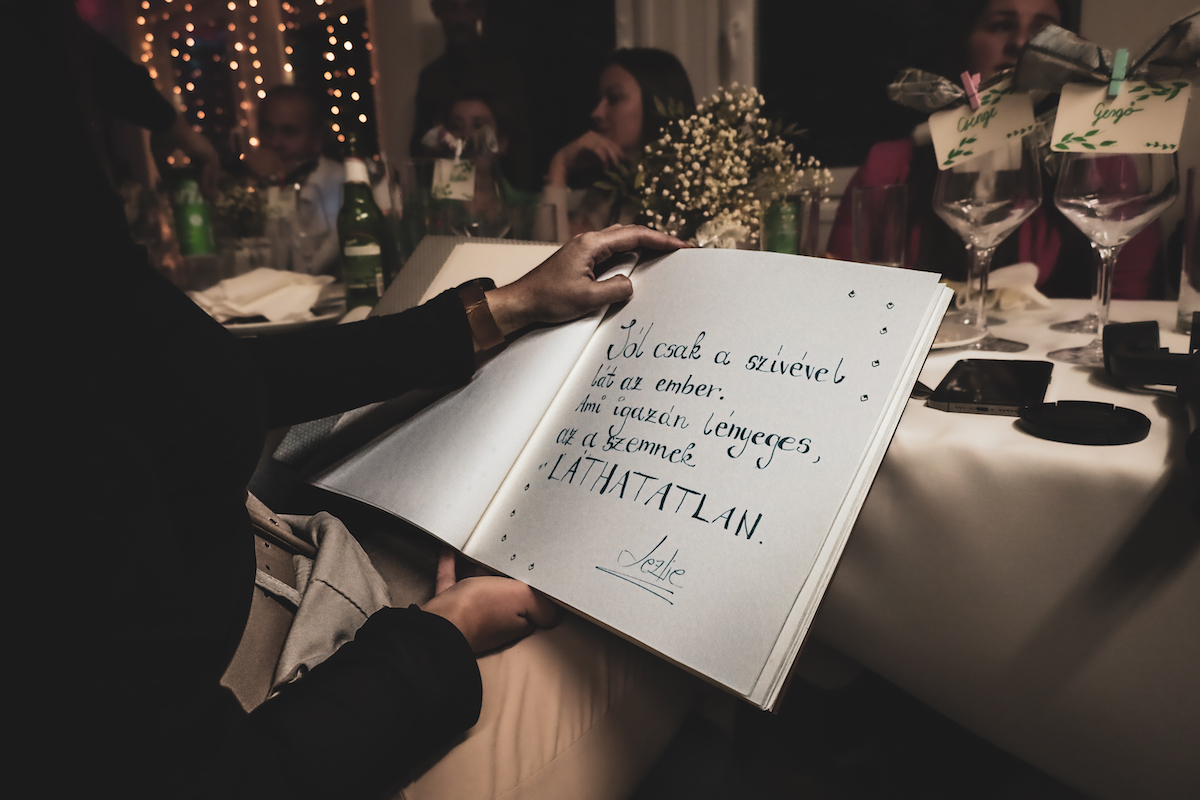 Csenge
Gergő
Jól csak a szívével
lát az ember.
Ami igazán lényeges,
az a szemnek
LÁTHATATLAN.
Lezlie